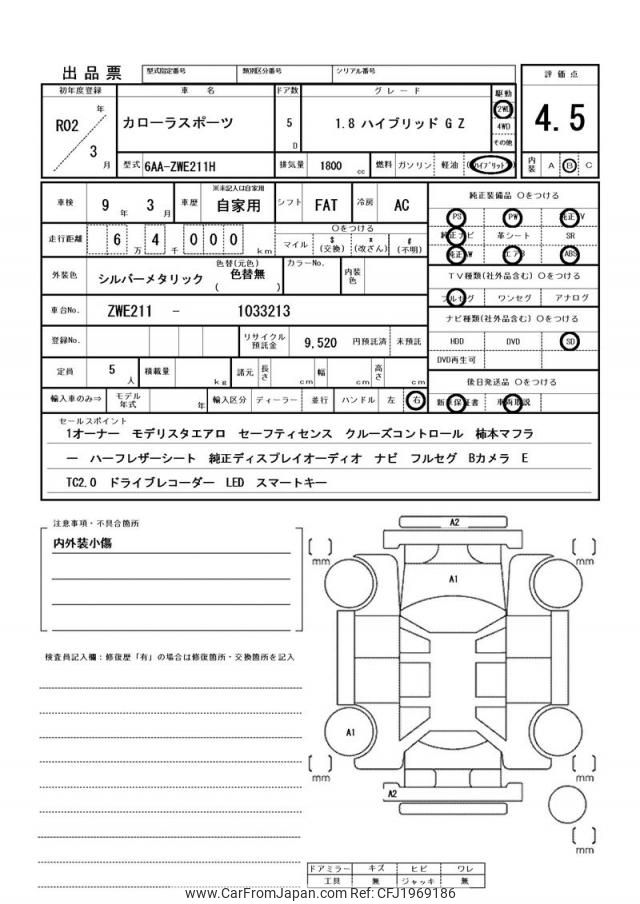 出品票
型式指定番号 類別区分番号 シリアル番号
評価点
4.5
初年度登録 車名 ドア数 グレード 駆動
R02 年 3 月
カローラスポーツ 5 D 1.8 ハイブリッド G Z
2WD
4WD
その他
型式 6AA-ZWE211H 排気量 1800 cc 燃料 ガソリン 軽油 (ハイブリッド)
内装 A B C
車検 9 年 3 月 車歴 ※未記入は自家用 自家用 シフト FAT 冷房 AC
走行距離 6 万 4 千 0 0 0 km
○をつける
マイル $(交換) *(改ざん) #(不明)
外装色 シルバーメタリック 色替(元色) 色替無 ( ) カラーNo. 内装色
車台No. ZWE211 - 1033213
登録No. リサイクル預託金 9,520 円預託済 未預託
定員 5 人 積載量 kg 諸元 長さ cm 幅 cm 高さ cm
輸入車のみ⇒ モデル年式 年 輸入区分 ディーラー 並行 ハンドル 左 右
純正装備品 ○をつける
PS PW 純正TV
純正ナビ 革シート SR
純正AW エアB ABS
TV種類(社外品含む) ○をつける
フルセグ ワンセグ アナログ
ナビ種類(社外品含む) ○をつける
HDD DVD SD
DVD再生可
後日発送品 ○をつける
新車保証書 車両取説
セールスポイント
1オーナー モデリスタエアロ セーフティセンス クルーズコントロール 柿本マフラ
ー ハーフレザーシート 純正ディスプレイオーディオ ナビ フルセグ Bカメラ E
TC2.0 ドライブレコーダー LED スマートキー
注意事項・不具合箇所
内外装小傷
検査員記入欄：修復歴「有」の場合は修復箇所・交換箇所を記入
A2
[ ] mm
[ ] mm
A1
A1
[ ] mm
[ ] mm
A2
[ ] mm
ドアミラー キズ ヒビ ワレ
工具 無 ジャッキ 無
www.CarFromJapan.com Ref: CFJ1969186